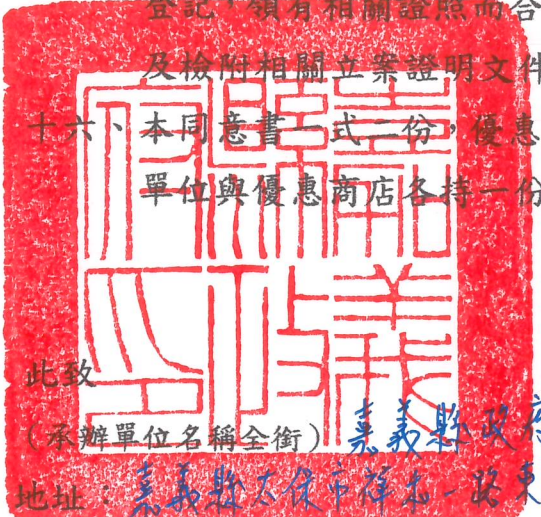 登記，領有相關證照而合
及檢附相關立案證明文件
十六、本同意書一式二份，優惠
單位與優惠商店各持一份
嘉義縣政府印
此致
(承辦單位名稱全銜) 嘉義縣政府
地址：嘉義縣太保市祥和一路東